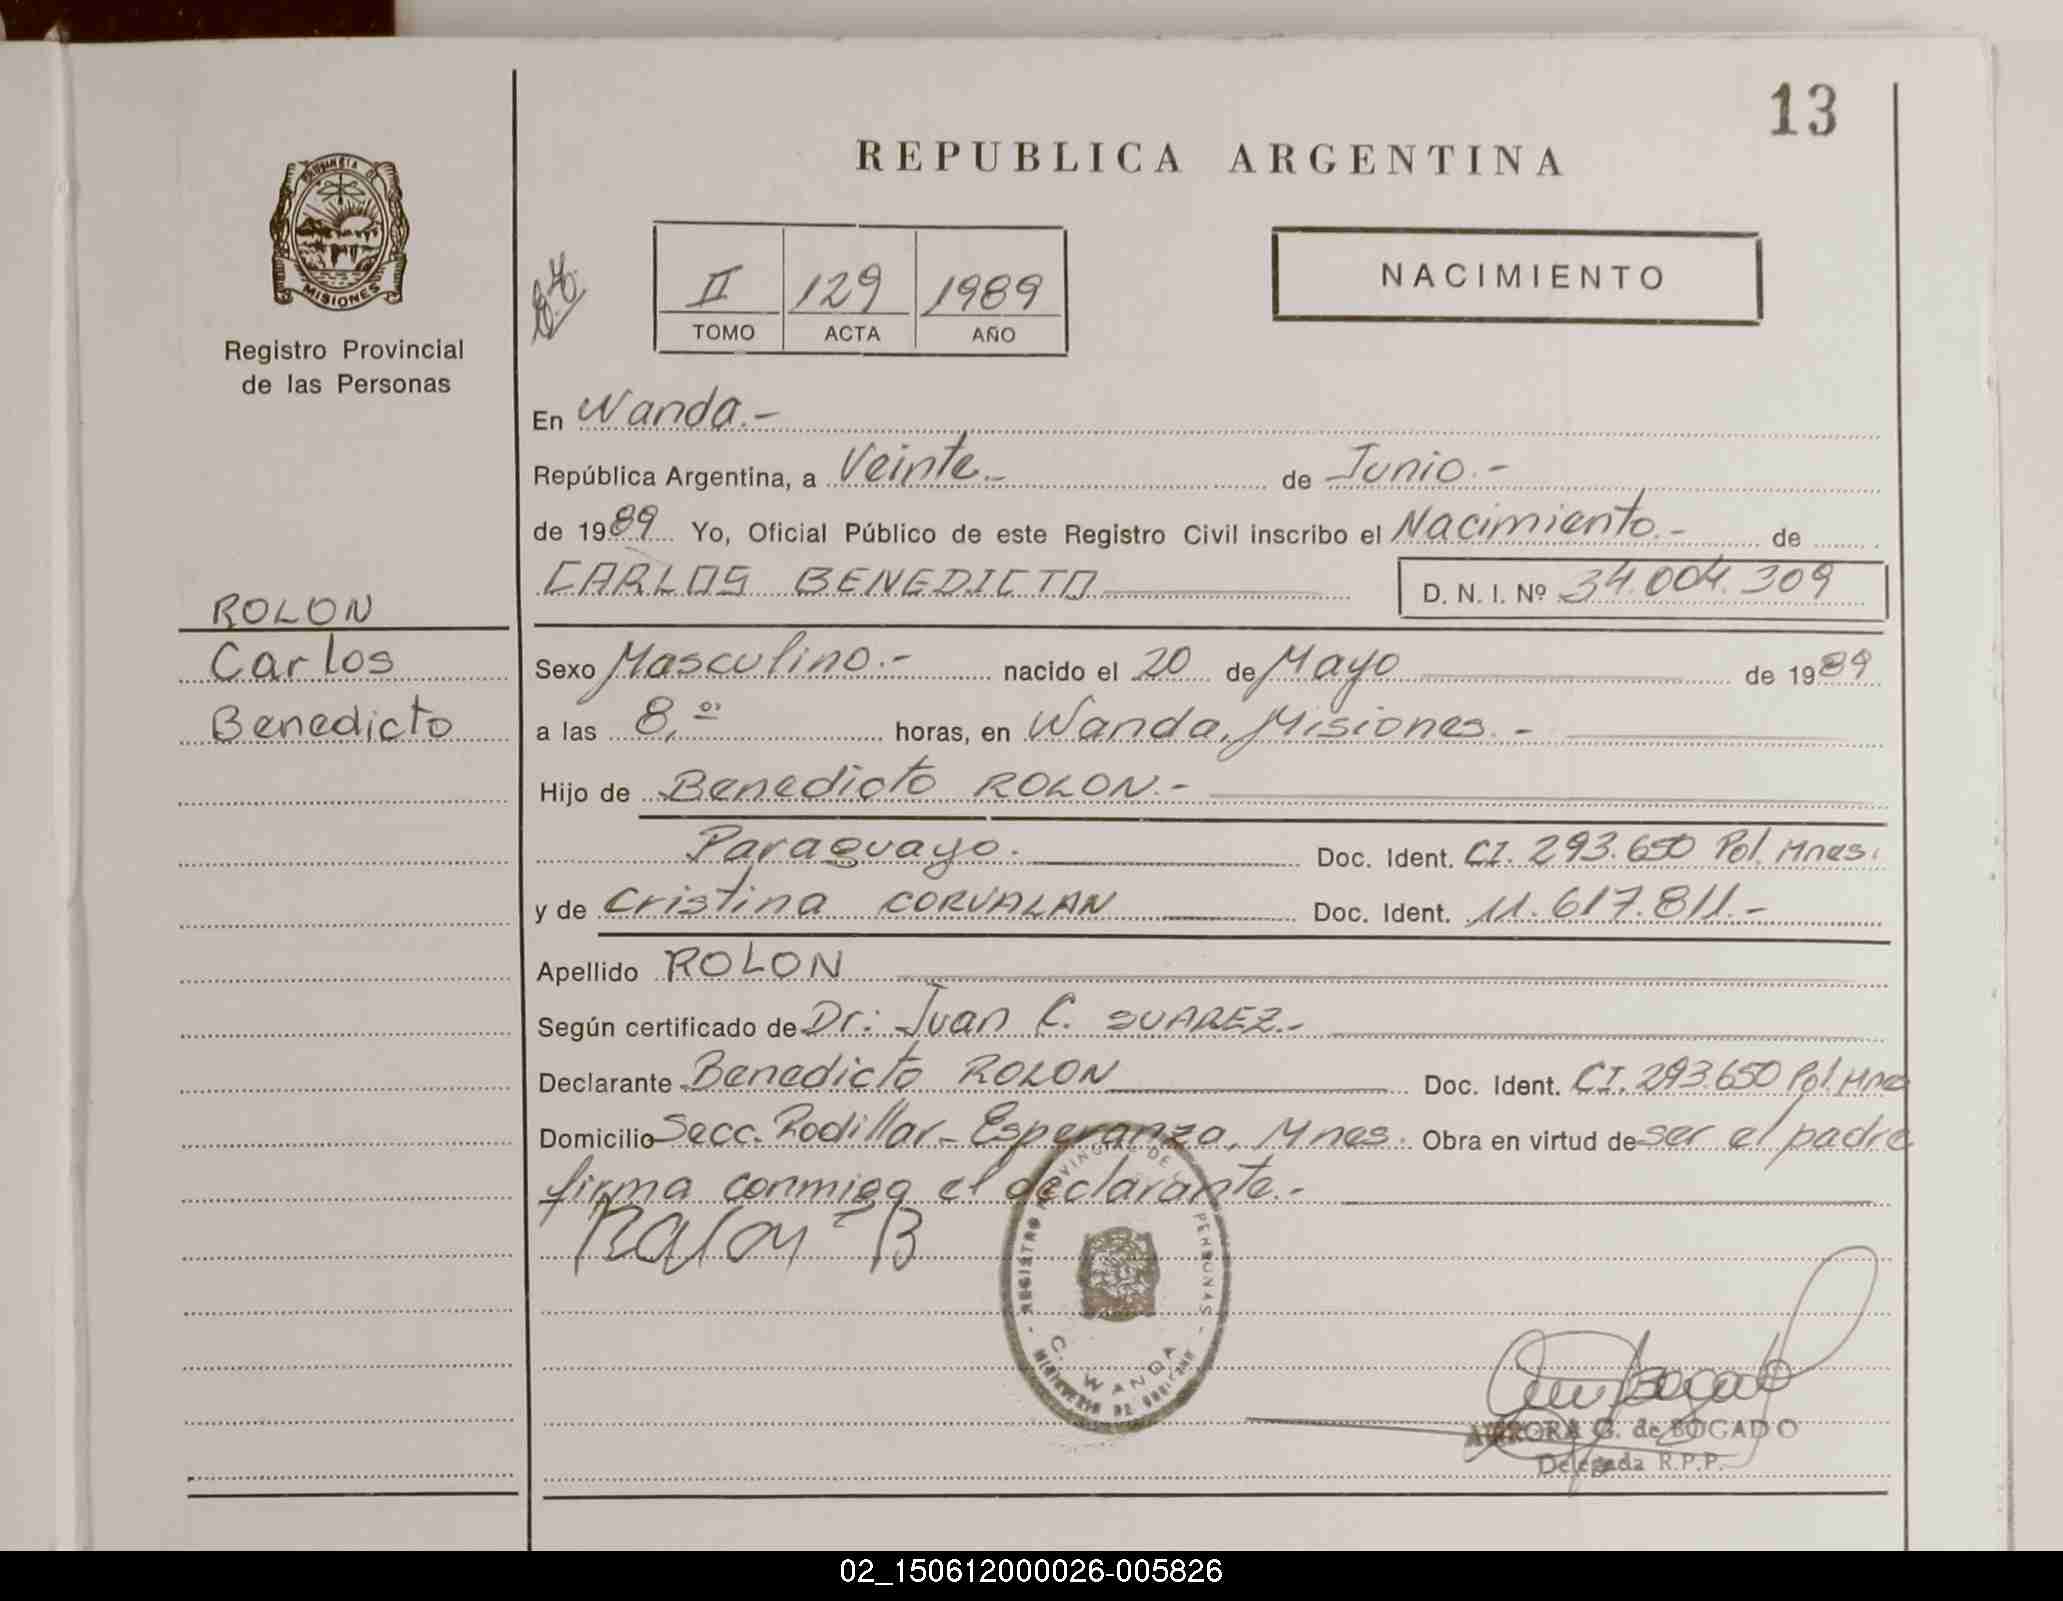 13
REPUBLICA ARGENTINA
PROVINCIA DE
MISIONES
Registro Provincial
de las Personas
II 129 1989
TOMO ACTA AÑO
NACIMIENTO
En Wanda.-
República Argentina, a Veinte.- de Junio.-
de 1989 Yo, Oficial Público de este Registro Civil inscribo el Nacimiento.- de
CARLOS BENEDICTO D. N. I. Nº 34.004.309
ROLON
Carlos
Benedicto
Sexo Masculino.- nacido el 20 de Mayo de 1989
a las 8,00 horas, en Wanda, Misiones.-
Hijo de Benedicto ROLON.-
Paraguayo. Doc. Ident. CI. 293.650 Pol. Mnes.
y de Cristina CORVALAN Doc. Ident. 11.617.811.-
Apellido ROLON
Según certificado de Dr: Juan C. SUAREZ.-
Declarante Benedicto ROLON Doc. Ident. CI. 293.650 Pol. Mnes
Domicilio Secc. Rodillar- Esperanza, Mnes. Obra en virtud de ser el padre
firma conmigo el declarante.-
Rolon B
REGISTRO PROVINCIAL DE LAS PERSONAS
C. WANDA
MINISTERIO DE GOBIERNO
AURORA G. de BOGADO
Delegada R.P.P.
02_150612000026-005826